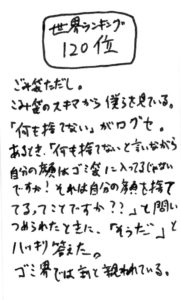 世界ランキング
120位
ごみ袋ただし。
ごみ袋のスキマから僕らを見ている。
「何も捨てない」がログセ。
あるとき、「何も捨てないと言いながら
自分の顔はゴミ袋に入ってるじゃない
ですか!それは自分の顔を捨て
てるってことですか??」と問い
つめられたときに、「そうだ」と
ハッキリ答えた。
ゴミ界では割と親われている。